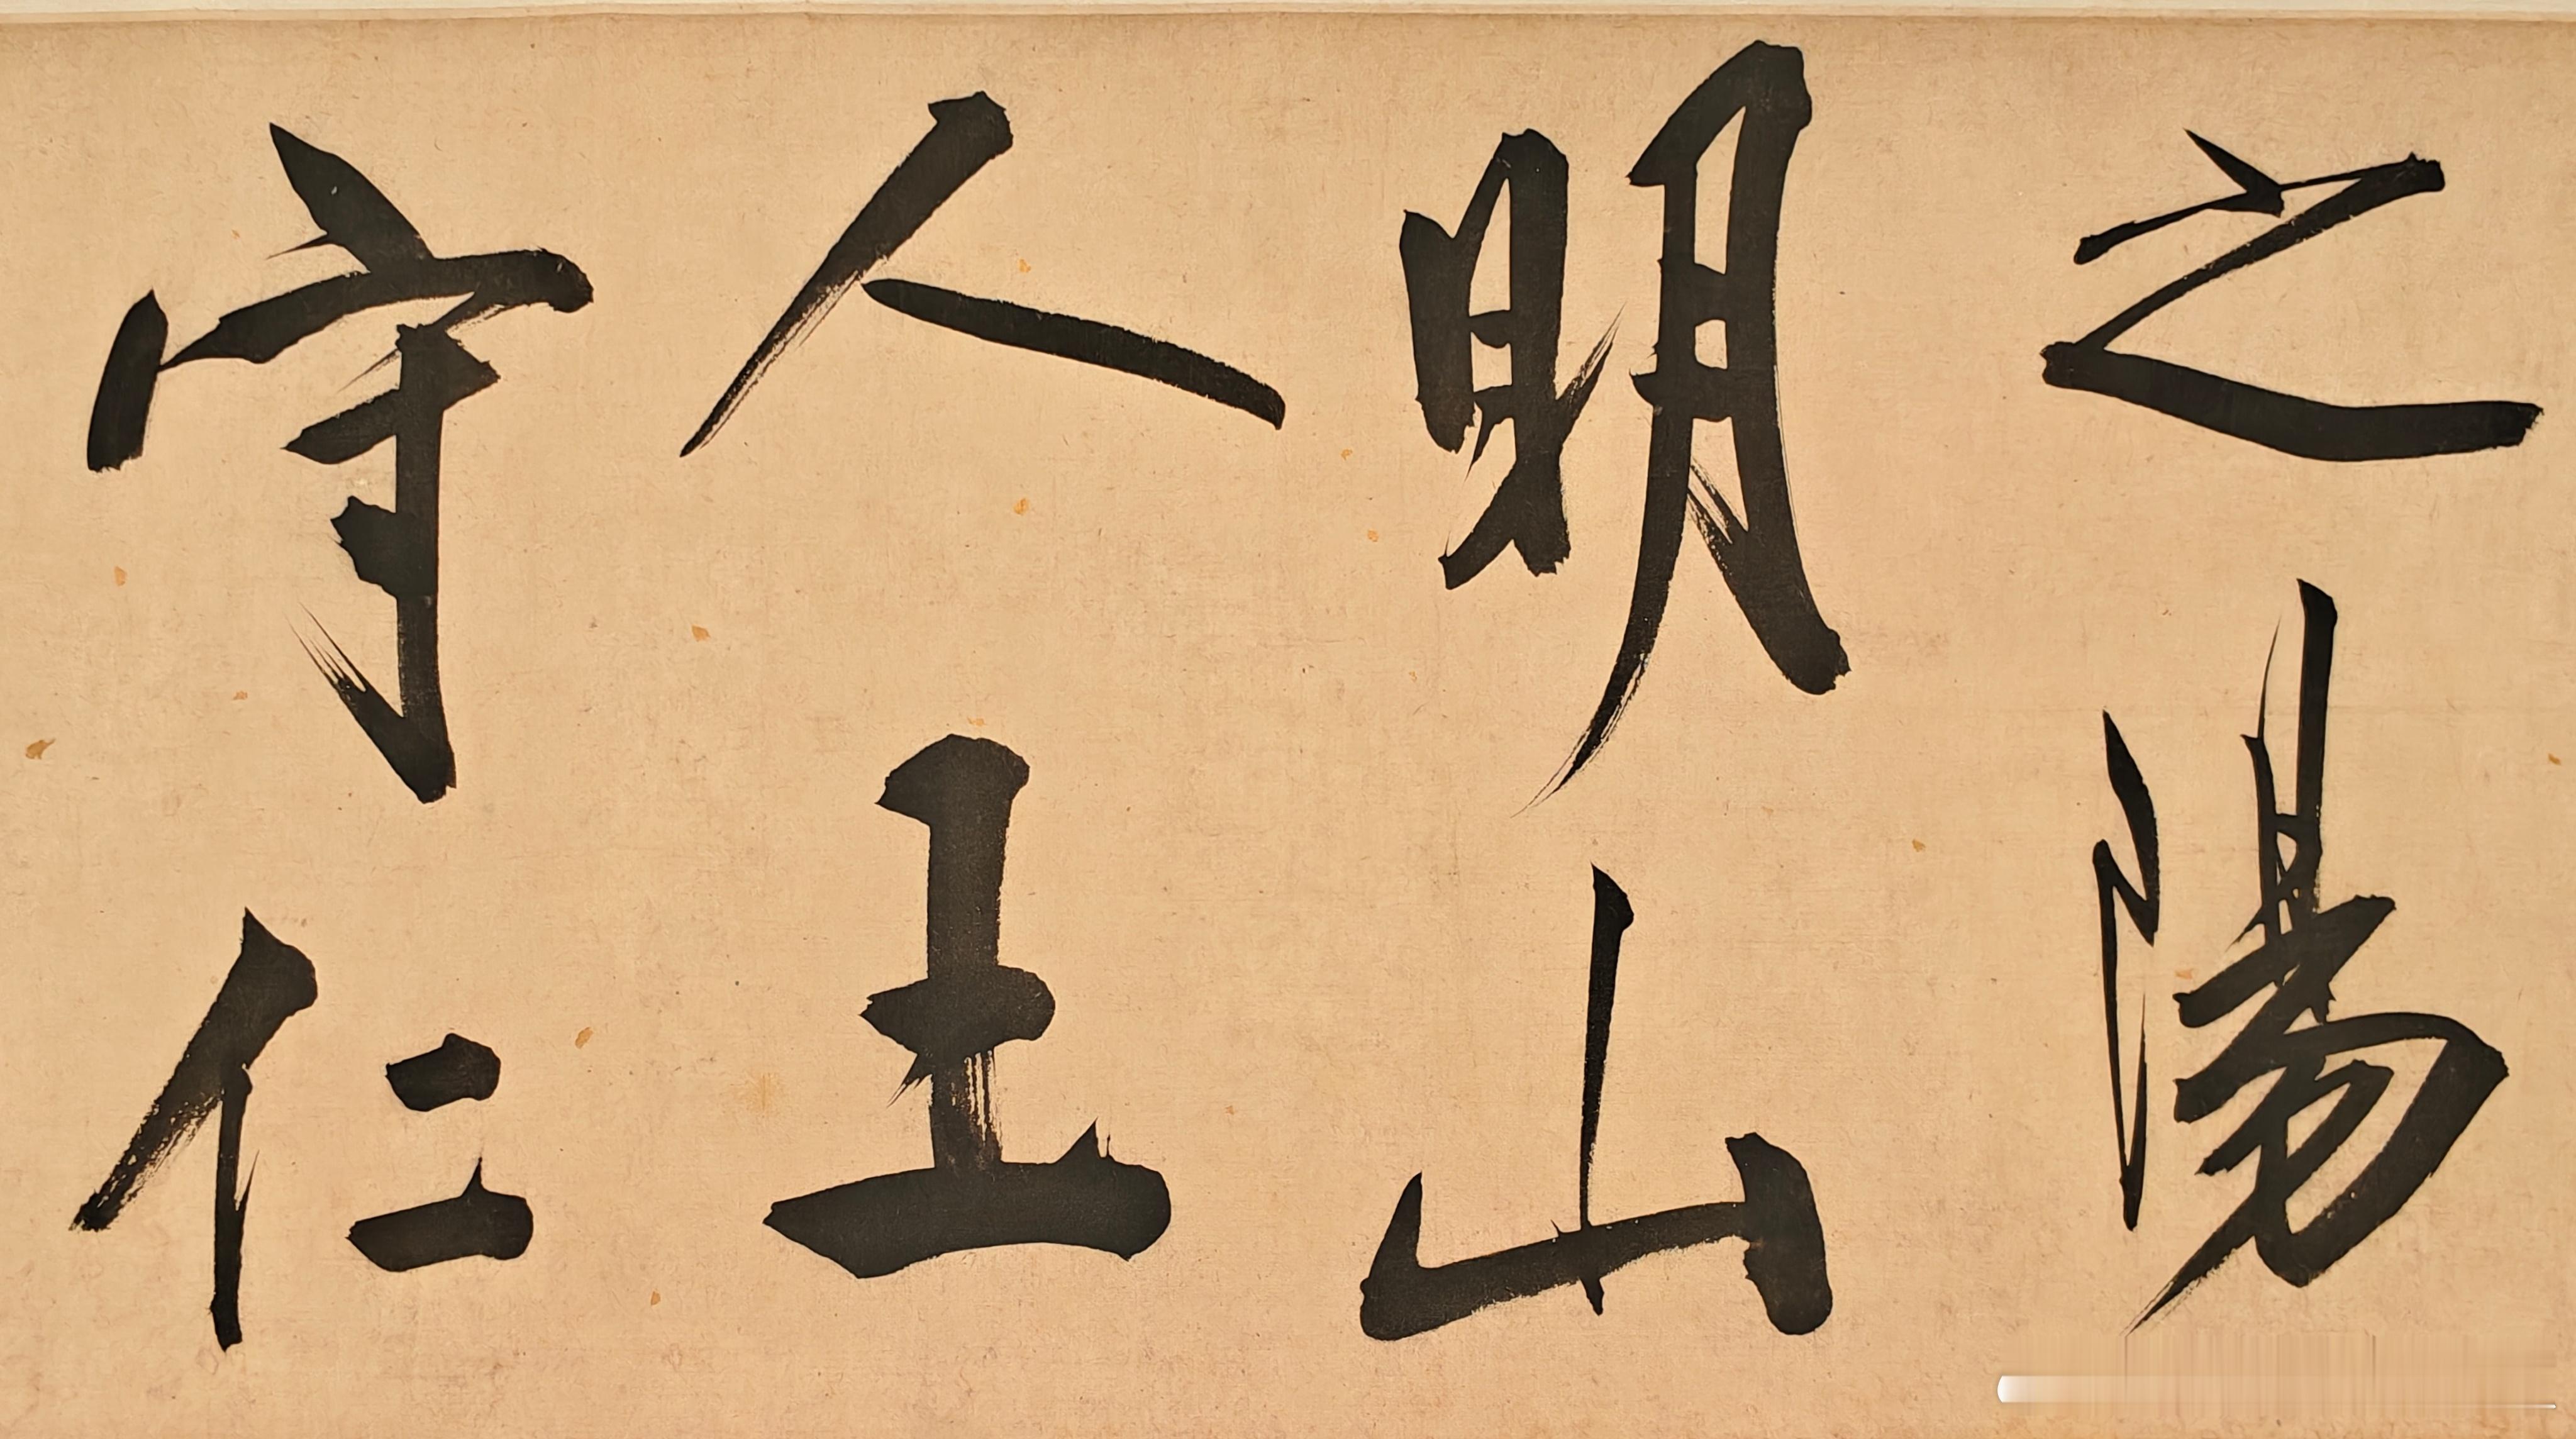 之陽
明山
人王
守仁